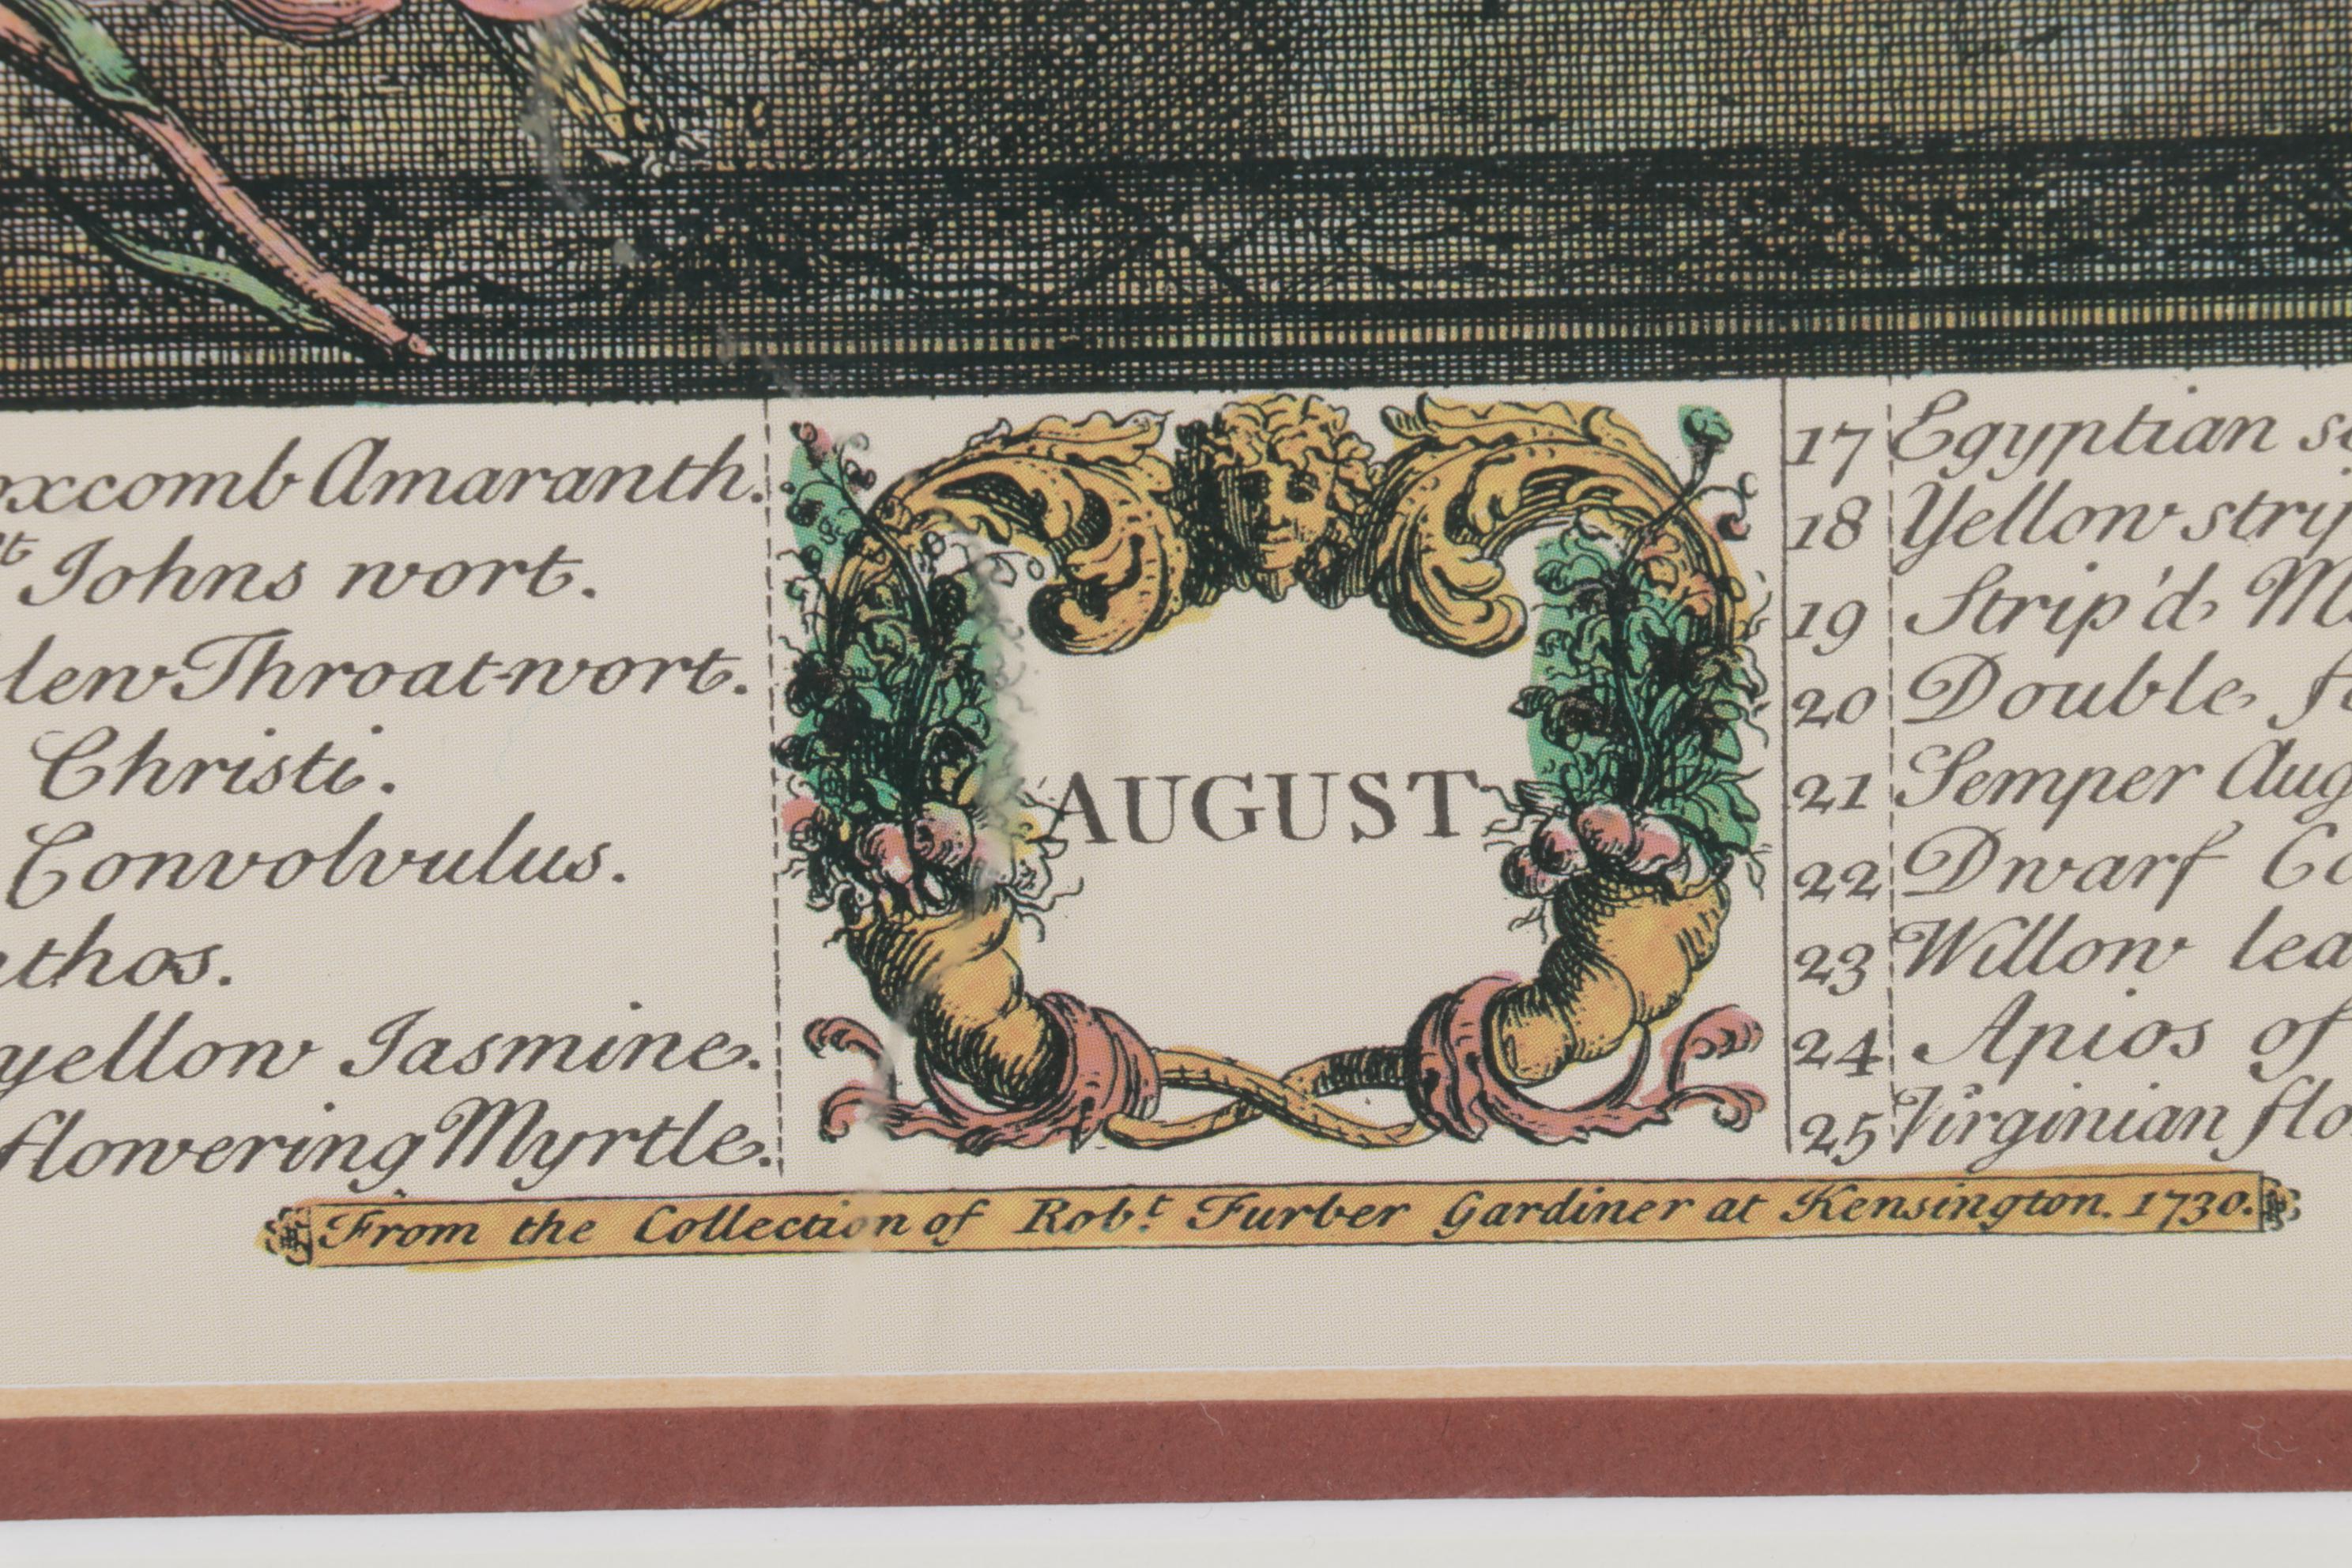 Amaranth.
Johns wort.
Throat-wort.
Christi.
Convolvulus.
yellow Jasmine.
flowering Myrtle.
AUGUST
17 Egyptian
18 Yellow
19 Strip'd
20 Double
21 Semper
22 Dwarf
23 Willow
24 Apios of
25 Virginian
From the Collection of Robt Furber Gardiner at Kensington. 1730.